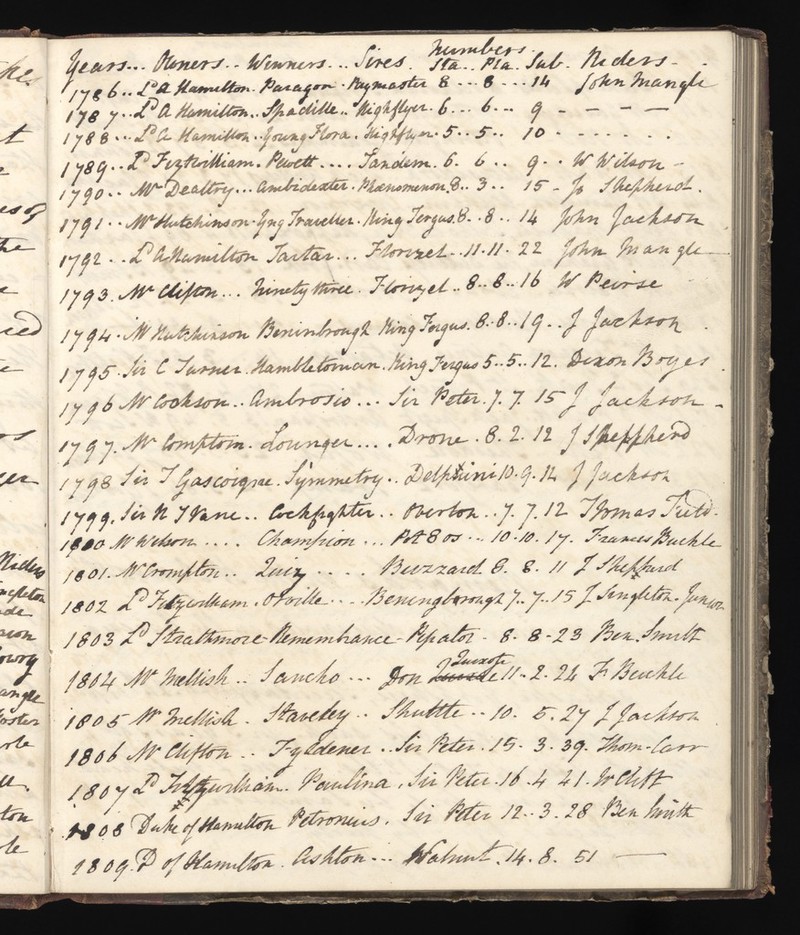 Years... Owners.. Winners... Sires. Numbers. Sta.. Pla. Sub. Riders - -
1786.. Ld A Hamilton. Paragon. Paymaster 8... 8... 14 John Mangle
1787.. Ld A Hamilton.. Spadille.. Highflyer. 6... 6... 9 - - - -
1788.. Ld A Hamilton. Young Flora. Highflyer. 5.. 5.. 10 - - - - - -
1789.. Ld Fitzwilliam. Pewett.... Tandem. 6. 6.. 9.. W Wilson -
1790.. Mr Dealtry... Ambidexter. Phænomenon. 8.. 3.. 15 - Js Shepherd.
1791.. Mr Hutchinson. Yng Traveller. King Fergus. 8.. 8.. 14 John Jackson
1792.. Ld A Hamilton Tartar... Florizel.. 11. 11. 22 John Mangle
1793. Mr Clifton... Ninety three. Florizel.. 8.. 8.. 16 W Peirse
1794. Mr Hutchinson Beninbrough King Fergus. 8. 8.. 19.. J Jackson.
1795. Sir C Turner. Hambletonian. King Fergus 5.. 5.. 12. Dixon Boyes.
1796 Mr Cookson.. Ambrosio... Sir Peter. 7. 7. 15 J Jackson -
1797. Mr Comptom. Lounger.... Drone. 8. 2. 12 J Sheppherd
1798 Sir T Gascoigne. Symmetry.. Delphini 10. 9. 14 J Jackson
1799. Sir H T Vane.. Cockfighter.. Overton.. 7. 7. 12 Thomas Field.
1800 Mr Wilson.... Champion... Pot8os... 10. 10. 17. Francis Buckle
1801. Mr Crompton.. Quiz..... Buzzard 8. 8. 11 J Shepherd
1802 Ld Fitzwilliam. Orville.... Beningborough 7.. 7.. 15 J Singleton. Junior
1803 Ld Strathmore - Remembrance - Pipator - 8. 8 - 23 Ben. Smith
1804 Mr Mellish.. Sancho... Don Quixote 11.. 2. 24 F Buckle
1805 Mr Mellish. Staveley.. Shuttle.. 10. 5. 27 J Jackson
1806 Mr Clifton.. Fyldener.. Sir Peter. 15. 3. 39. Thom. Carr
1807 Ld Fitzwilliam. Paulina. Sir Peter. 16. 4 41. W Clift
1808 Duke of Hamilton Petronius. Sir Peter 12.. 3. 28 Ben Smith
1809. D of Hamilton. Ashton... Walnut. 14. 8. 51 —